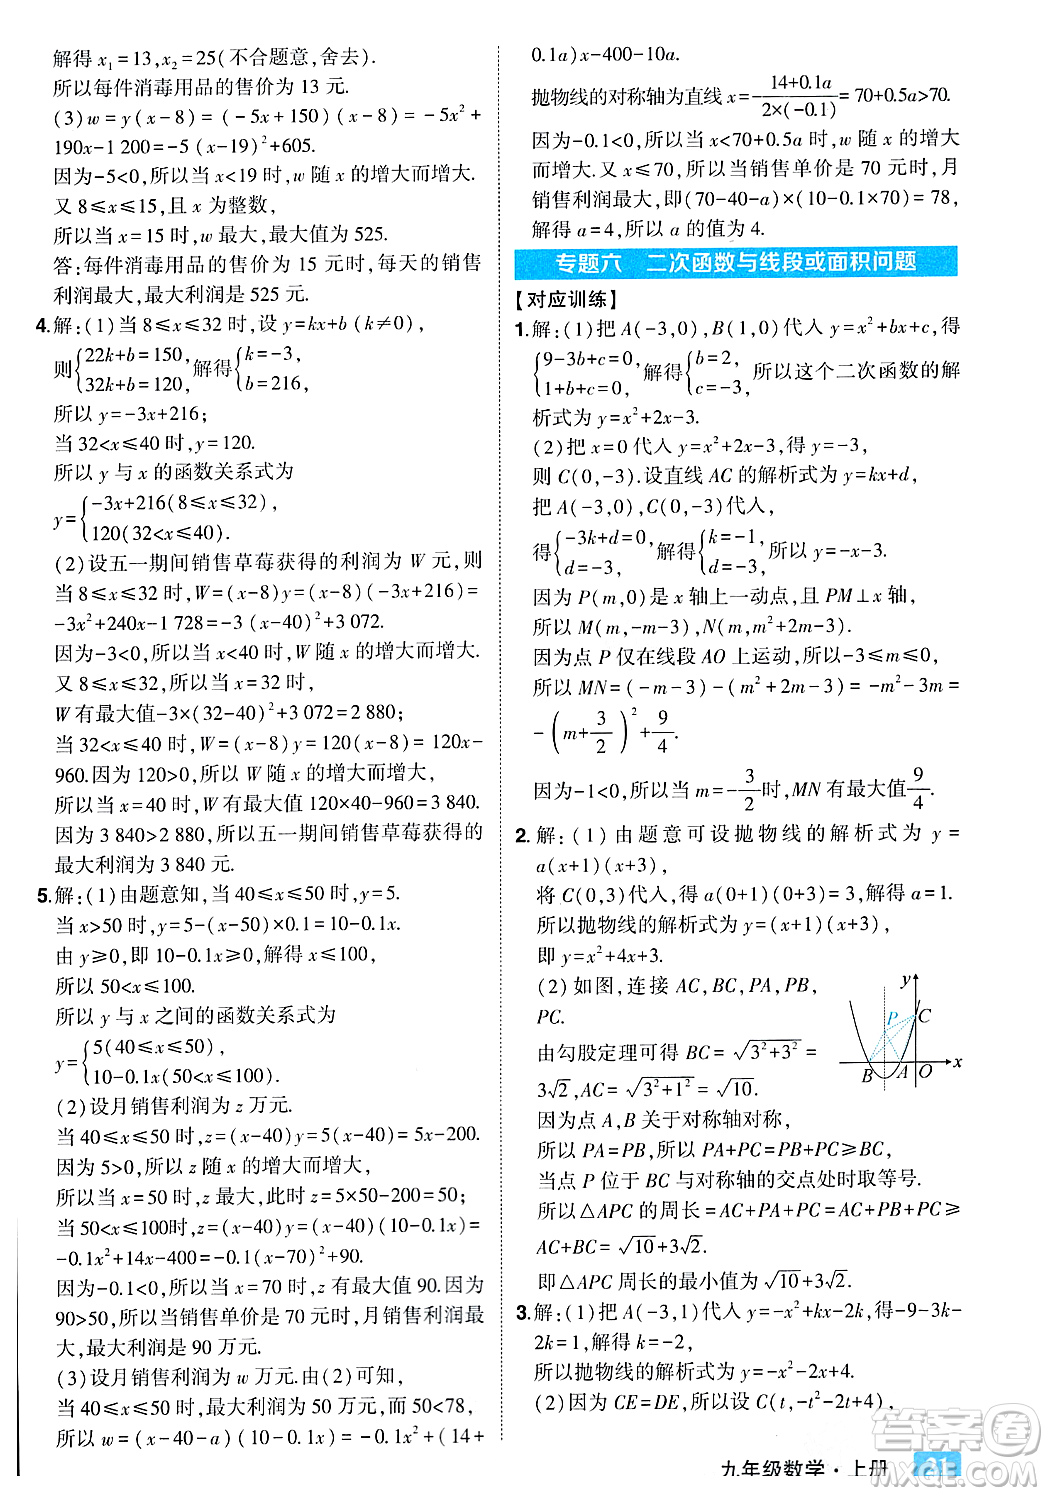 解得 x₁=13,x₂=25(不合题意,舍去).
所以每件消毒用品的售价为 13 元.
(3)w=y(x-8)=(-5x+150)(x-8)=-5x²+
190x-1 200=-5(x-19)²+605.
因为-5<0,所以当 x<19 时,w 随 x 的增大而增大.
又 8≤x≤15,且 x 为整数,
所以当 x=15 时,w 最大,最大值为 525.
答:每件消毒用品的售价为 15 元时,每天的销售
利润最大,最大利润是 525 元.
4.解:(1)当 8≤x≤32 时,设 y=kx+b(k≠0),
则{22k+b=150, 32k+b=120, 解得{k=-3, b=216,
所以 y=-3x+216;
当 32<x≤40 时,y=120.
所以 y 与 x 的函数关系式为
y={-3x+216(8≤x≤32), 120(32<x≤40).
(2)设五一期间销售草莓获得的利润为 W 元,则
当 8≤x≤32 时,W=(x-8)y=(x-8)(-3x+216)=
-3x²+240x-1 728=-3(x-40)²+3 072.
因为-3<0,所以当 x<40 时,W 随 x 的增大而增大.
又 8≤x≤32,所以当 x=32 时,
W 有最大值-3×(32-40)²+3 072=2 880;
当 32<x≤40 时,W=(x-8)y=120(x-8)=120x-
960.因为 120>0,所以 W 随 x 的增大而增大,
所以当 x=40 时,W 有最大值 120×40-960=3 840.
因为 3 840>2 880,所以五一期间销售草莓获得的
最大利润为 3 840 元.
5.解:(1)由题意知,当 40≤x≤50 时,y=5.
当 x>50 时,y=5-(x-50)×0.1=10-0.1x.
由 y≥0,即 10-0.1x≥0,解得 x≤100,
所以 50<x≤100.
所以 y 与 x 之间的函数关系式为
y={5(40≤x≤50), 10-0.1x(50<x≤100).
(2)设月销售利润为 z 万元.
当 40≤x≤50 时,z=(x-40)y=5(x-40)=5x-200.
因为 5>0,所以 z 随 x 的增大而增大,
所以当 x=50 时,z 最大,此时 z=5×50-200=50;
当 50<x≤100时,z=(x-40)y=(x-40)(10-0.1x)=
-0.1x²+14x-400=-0.1(x-70)²+90.
因为-0.1<0,所以当 x=70 时,z 有最大值 90.因为
90>50,所以当销售单价是 70 元时,月销售利润最
大,最大利润是 90 万元.
(3)设月销售利润为 w 万元.由(2)可知,
当 40≤x≤50 时,最大利润为 50 万元,而 50<78,
所以 w=(x-40-a)(10-0.1x)=-0.1x²+(14+
0.1a)x-400-10a.
抛物线的对称轴为直线 x=-(14+0.1a)/(2×(-0.1))=70+0.5a>70.
因为-0.1<0,所以当 x<70+0.5a 时,w 随 x 的增大
而增大.又 x≤70,所以当销售单价是 70 元时,月
销售利润最大,即(70-40-a)×(10-0.1×70)=78,
解得 a=4,所以 a 的值为 4.
专题六 二次函数与线段或面积问题
【对应训练】
1.解:(1)把 A(-3,0),B(1,0)代入 y=x²+bx+c,得
{9-3b+c=0, 1+b+c=0, 解得{b=2, c=-3, 所以这个二次函数的解
析式为 y=x²+2x-3.
(2)把 x=0 代入 y=x²+2x-3,得 y=-3,
则 C(0,-3).设直线 AC 的解析式为 y=kx+d,
把 A(-3,0),C(0,-3)代入,
得{-3k+d=0, d=-3, 解得{k=-1, d=-3, 所以 y=-x-3.
因为 P(m,0)是 x 轴上一动点,且 PM⊥x 轴,
所以 M(m,-m-3),N(m,m²+2m-3).
因为点 P 仅在线段 AO 上运动,所以-3≤m≤0,
所以 MN=(-m-3)-(m²+2m-3)=-m²-3m=
-(m+3/2)²+9/4.
因为-1<0,所以当 m=-3/2时,MN 有最大值9/4.
2.解:(1)由题意可设抛物线的解析式为 y=
a(x+1)(x+3),
将 C(0,3)代入,得 a(0+1)(0+3)=3,解得 a=1.
所以抛物线的解析式为 y=(x+1)(x+3),
即 y=x²+4x+3.
(2)如图,连接 AC,BC,PA,PB,
PC.
由勾股定理可得 BC=√(3²+3²)=
3√2,AC=√(3²+1²)=√10.
因为点 A,B 关于对称轴对称,
所以 PA=PB,所以 PA+PC=PB+PC≥BC,
当点 P 位于 BC 与对称轴的交点处时取等号.
所以△APC 的周长=AC+PA+PC=AC+PB+PC≥
AC+BC=√10+3√2.
即△APC 周长的最小值为√10+3√2.
y
P
C
B
A
O
x
3.解:(1)把 A(-3,1)代入 y=-x²+kx-2k,得-9-3k-
2k=1,解得 k=-2,
所以抛物线的解析式为 y=-x²-2x+4.
(2)因为 CE=DE,所以设 C(t,-t²-2t+4),
九年级数学·上册 21
答案圈
MXQE.COM